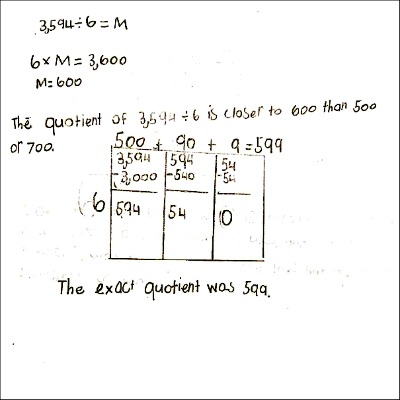 3,594÷6=M
6×M=3,600
M=600
The quotient of 3,594÷6 is closer to 600 than 500
or 700.
500 + 90 + 9=599
3,594 594 54
-3,000 -540 -54
6 594 54 0
The exact quotient was 599.